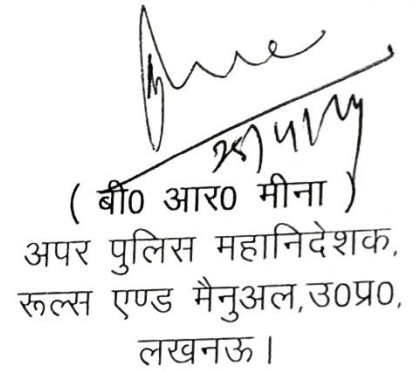 ( बी0 आर0 मीना )
अपर पुलिस महानिदेशक,
रूल्स एण्ड मैनुअल,उ0प्र0,
लखनऊ।